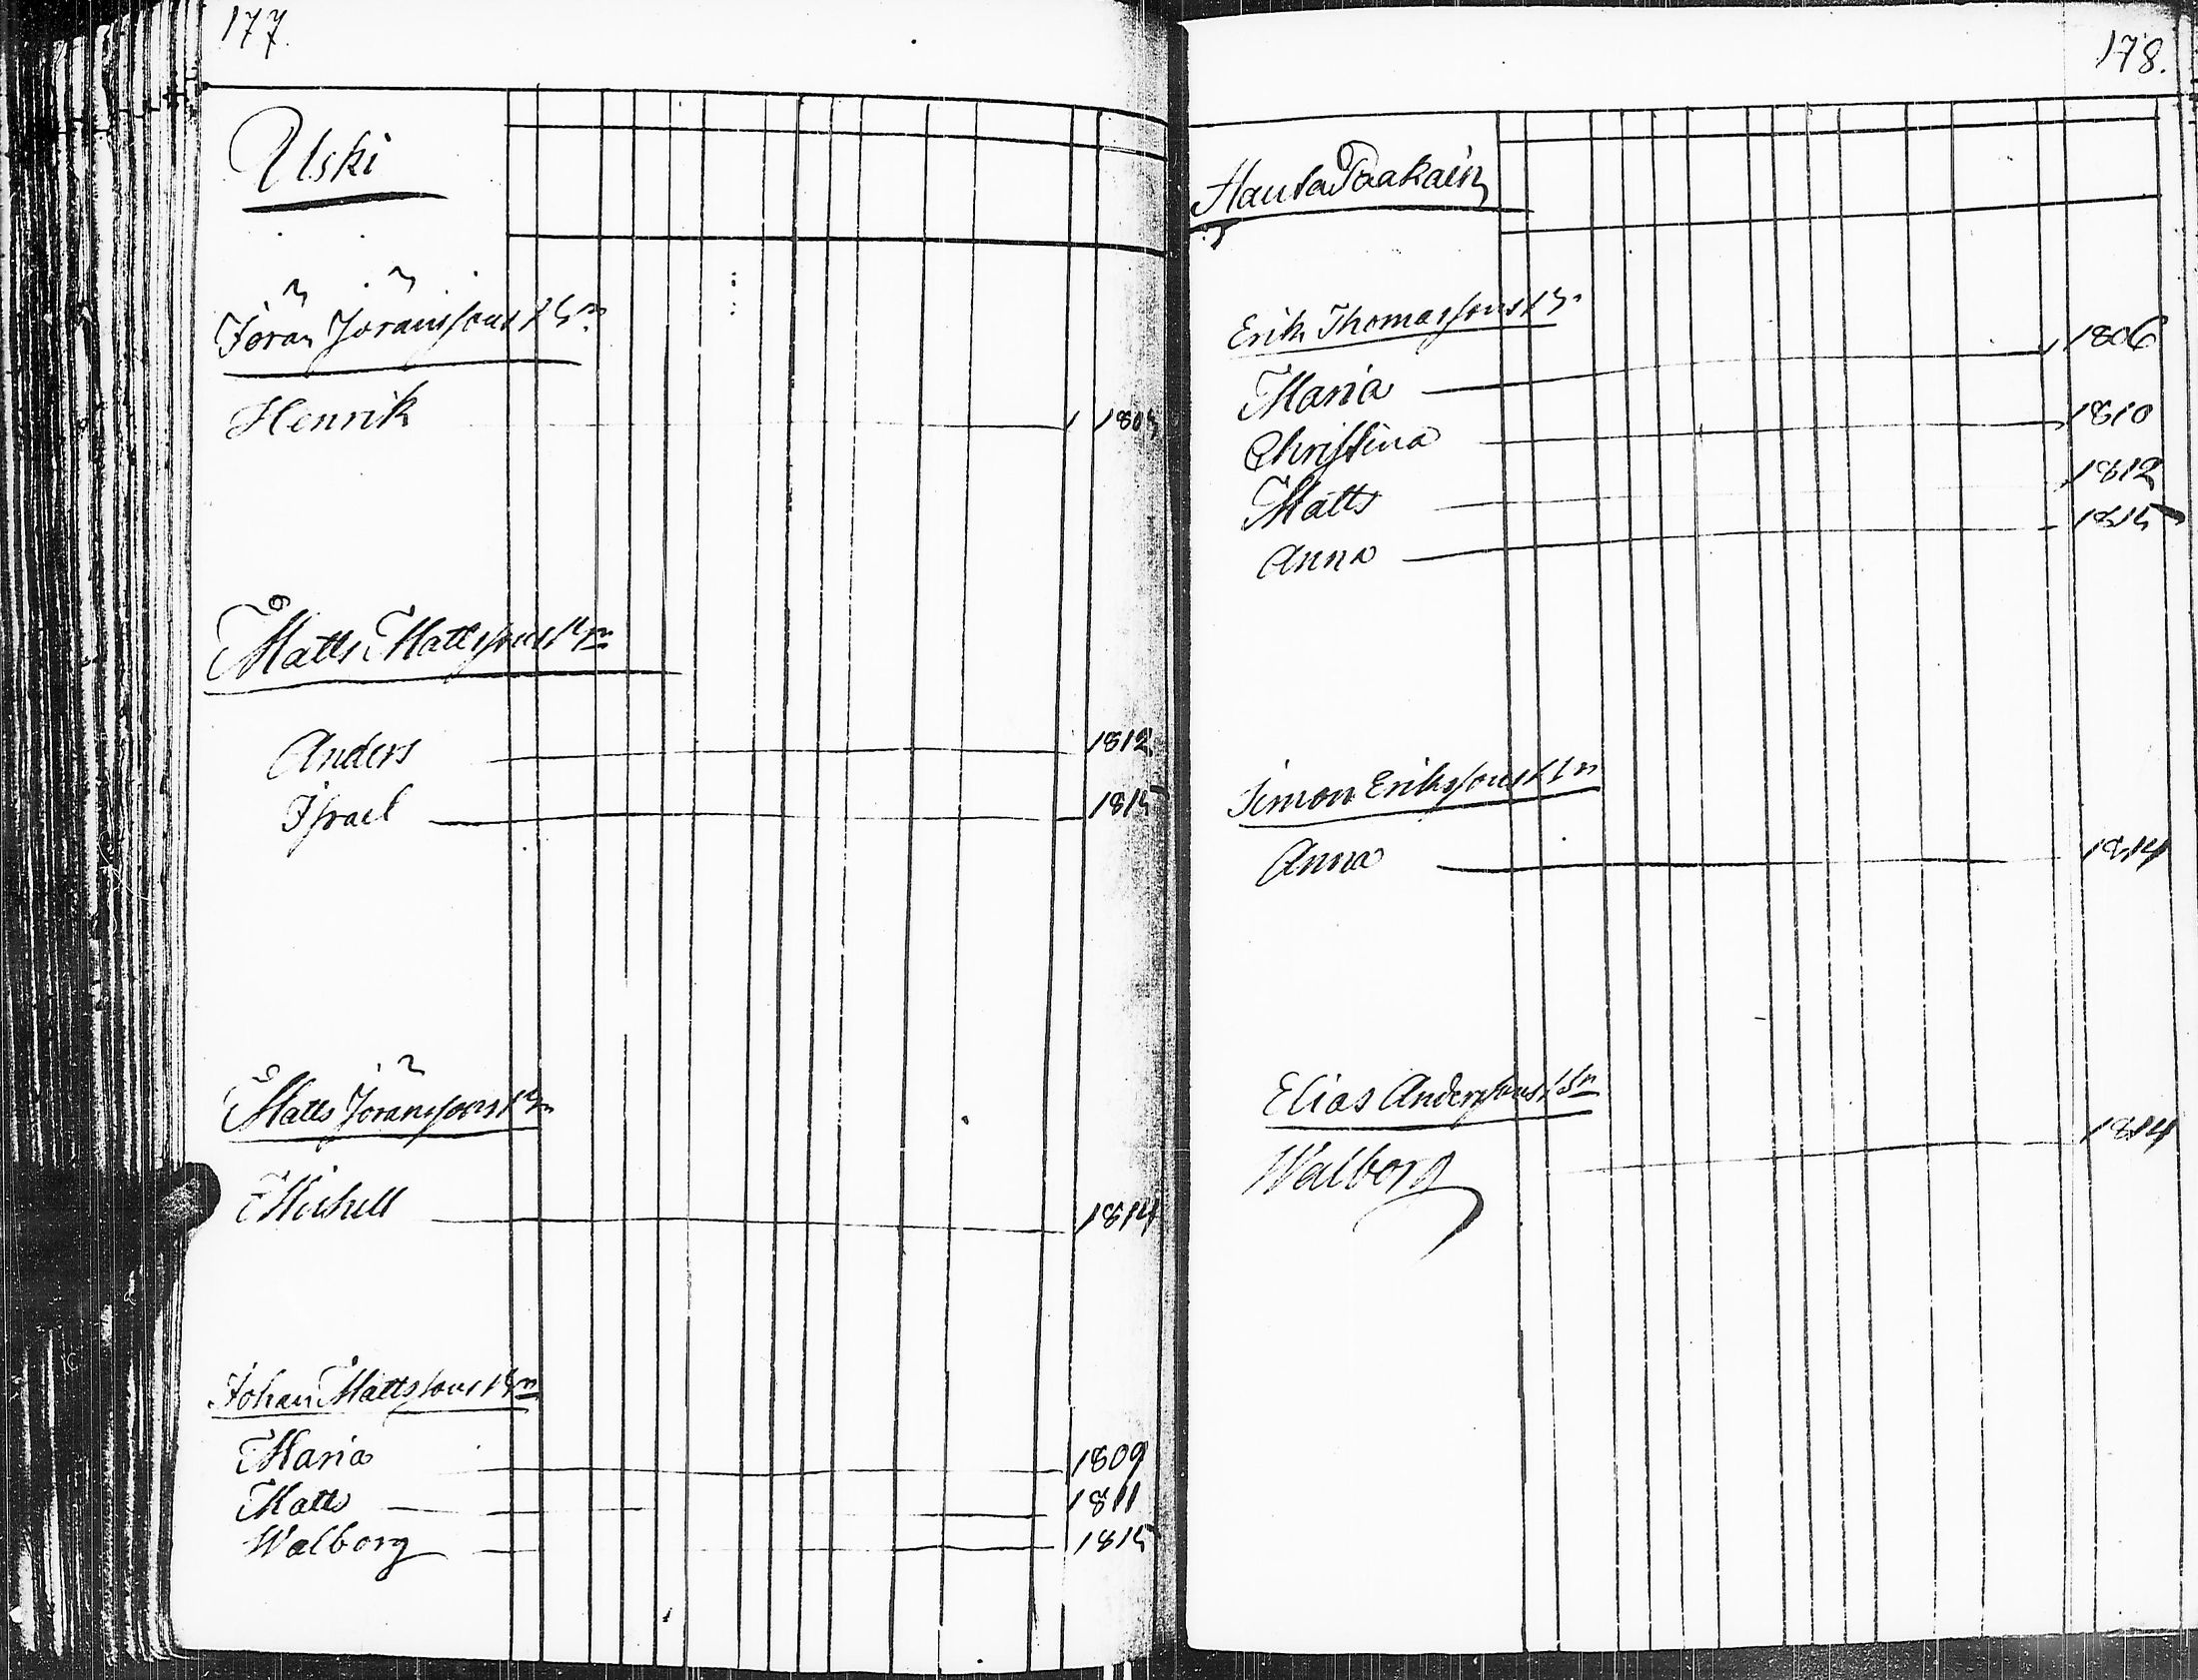 177.
Uski
Jöran Jöranssons
Henrik 180
Matts Mattssons
Anders 1812
Israel 1815
Matts Jöranssons
Michell 1814
Johan Mattssons
Maria 1809
Matts 1811
Walborg 1815
178.
Hauta
Erik Thomassons
Maria 1806
Christina 1810
Matts 1812
Anna 1815
Simon Erikssons
Anna 1814
Elias Anderssons
Walborg 1814